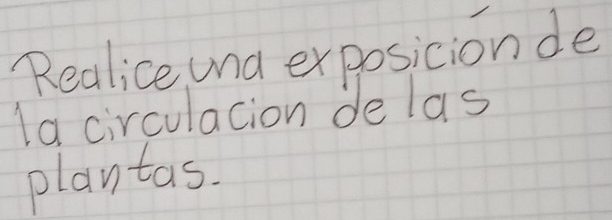 Realice una exposición de
la circulacion de las
plantas.